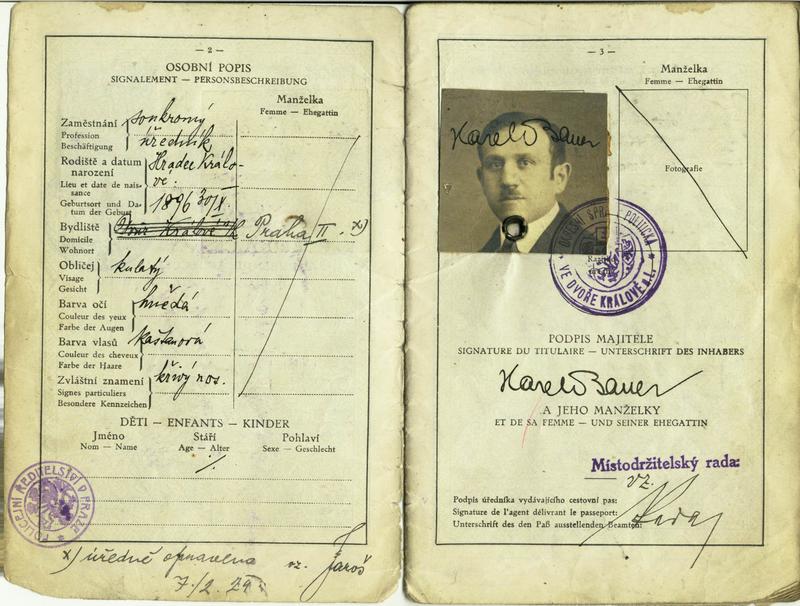 — 2 —
OSOBNÍ POPIS
SIGNALEMENT — PERSONSBESCHREIBUNG
Manželka
Femme — Ehegattin
Zaměstnání
Profession
Beschäftigung
soukromý
úředník
Rodiště a datum
narození
Lieu et date de nais-
sance
Geburtsort und Da-
tum der Geburt
Hradec Králo-
vé
1896 30/X.
Bydliště
Domicile
Wohnort
Dvůr Králové Praha II. x)
Obličej
Visage
Gesicht
kulatý
Barva očí
Couleur des yeux
Farbe der Augen
hnědá
Barva vlasů
Couleur des cheveux
Farbe der Haare
kaštanová
Zvláštní znamení
Signes particuliers
Besondere Kennzeichen
křivý nos.
DĚTI — ENFANTS — KINDER
Jméno Stáří Pohlaví
Nom — Name Age — Alter Sexe — Geschlecht
POLICEJNÍ ŘEDITELSTVÍ V PRAZE
x) úředně opraveno vz. Jaroš
7/2
— 3 —
Manželka
Femme — Ehegattin
Karel Bauer
Fotografie
OKRESNÍ SPRÁVA POLITICKÁ
VE DVOŘE KRÁLOVÉ n. L.
PODPIS MAJITELE
SIGNATURE DU TITULAIRE — UNTERSCHRIFT DES INHABERS
Karel Bauer
A JEHO MANŽELKY
ET DE SA FEMME — UND SEINER EHEGATTIN
Místodržitelský rada:
vz.
Podpis úředníka vydávajícího cestovní pas:
Signature de l'agent délivrant le passeport:
Unterschrift des den Paß ausstellenden Beamten: